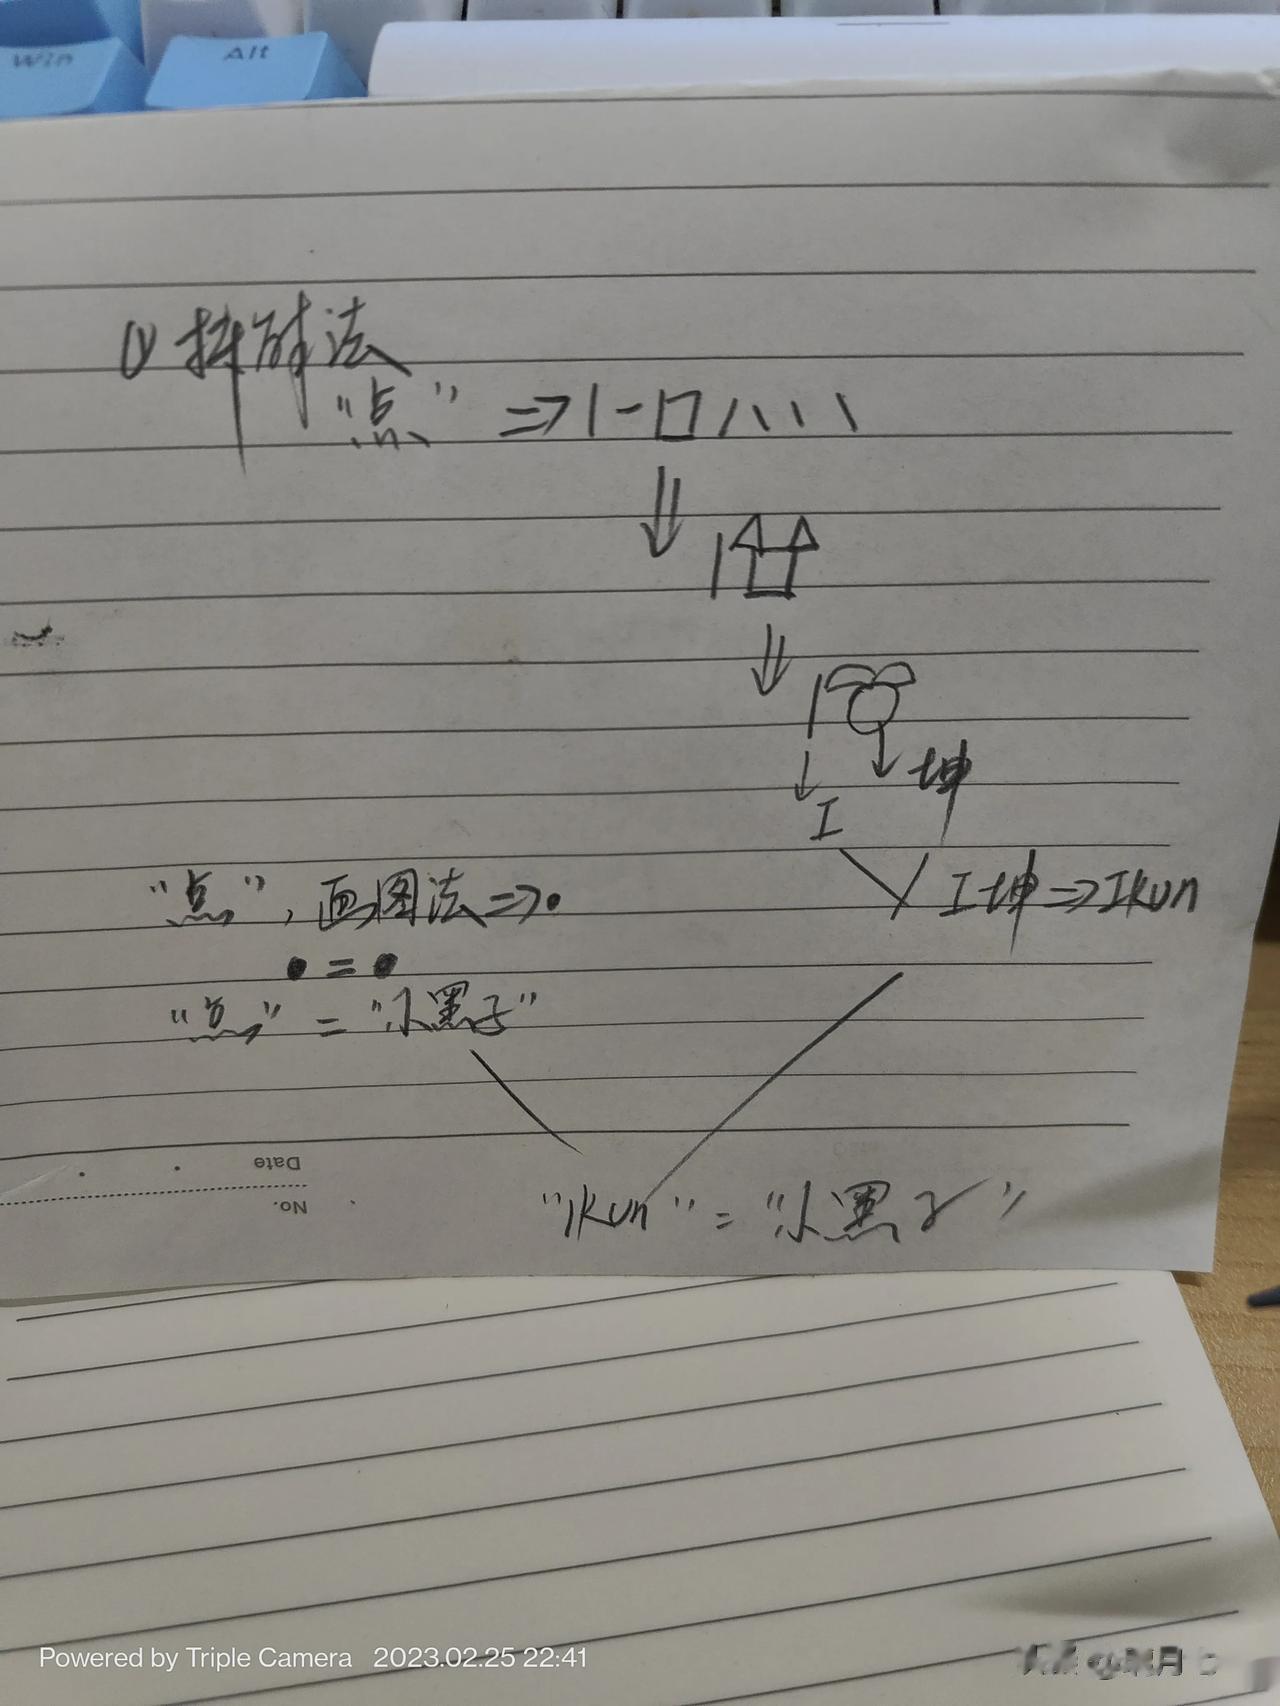 Win Alt
① 拆解法
“点” ⇒ 丨一口丿丶丶丶
坤
I
“点”, 画图法 ⇒ •
I坤 ⇒ Ikun
• = •
“点” = “小黑子”
Date
No.
“Ikun” = “小黑子”
Powered by Triple Camera 2023.02.25 22:41